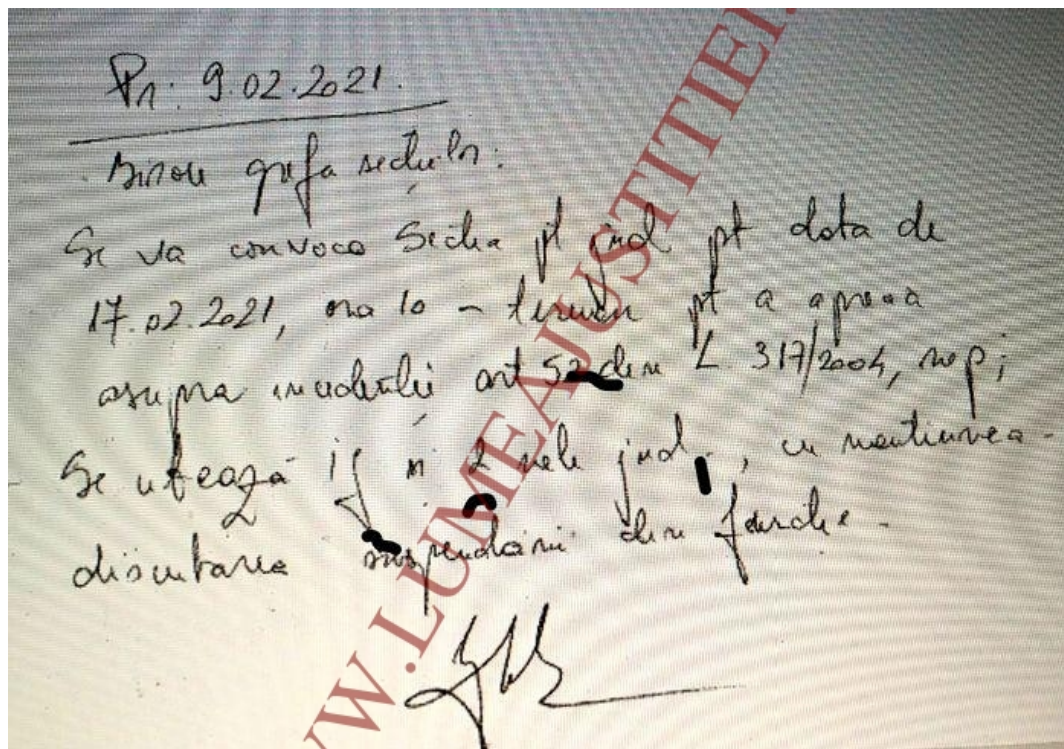 Pr. 9.02.2021.
Birou grefa secțiilor:
Se va convoca Secția pt jud pt data de
17.02.2021, ora 10 - termen pt a aprecia
asupra incidenței art 52 din L. 317/2004, rep;
Se citează și jud, cu mențiunea -
discutarea suspendării din funcție.
WWW.LUMEAJUSTITIEI.